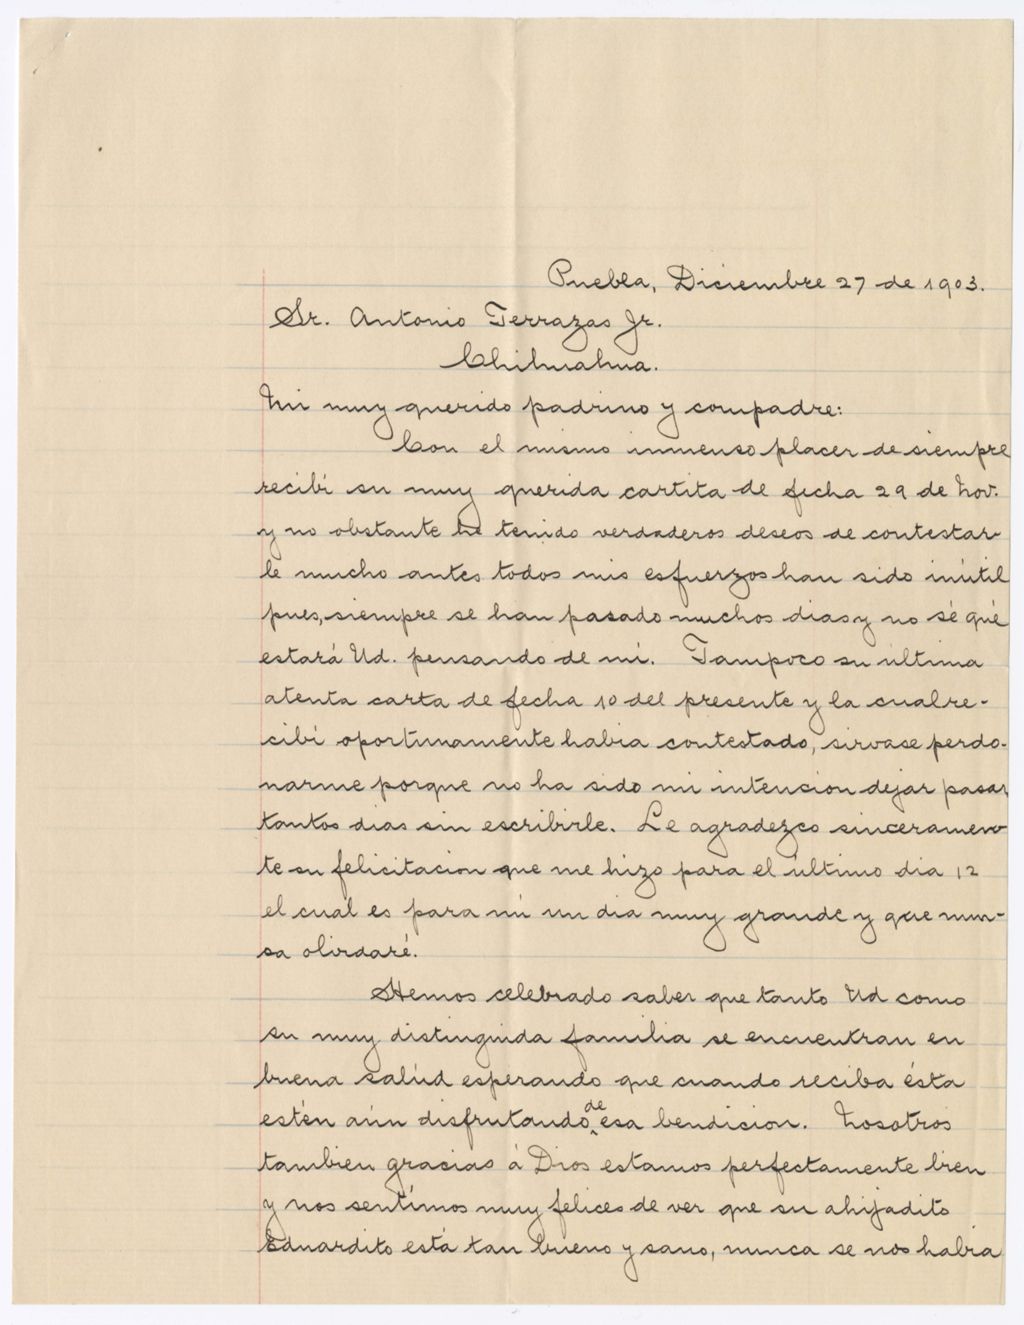 Puebla, Diciembre 27 de 1903.
Sr. Antonio Terrazas Jr.
Chihuahua.
Mi muy querido padrino y compadre:
Con el mismo inmenso placer de siempre
recibí su muy querida cartita de fecha 29 de Nov.
y no obstante he tenido verdaderos deseos de contestar-
le mucho antes todos mis esfuerzos han sido inútil
pues, siempre se han pasado muchos dias y no sé qué
estará Ud. pensando de mi. Tampoco su última
atenta carta de fecha 10 del presente y la cual re-
cibí oportunamente habia contestado, sirvase perdo-
narme porque no ha sido mi intencion dejar pasar
tantos dias sin escribirle. Le agradezco sinceramen-
te su felicitacion que me hizo para el último dia 12
el cual es para mí un dia muy grande y que nun-
sa olvidaré.
Hemos celebrado saber que tanto Ud como
su muy distinguida familia se encuentran en
buena salúd esperando que cuando reciba ésta
estén aún disfrutando de esa bendicion. Nosotros
tambien gracias á Dios estamos perfectamente bien
y nos sentimos muy felices de ver que su ahijadito
Eduardito está tan bueno y sano, nunca se nos habia